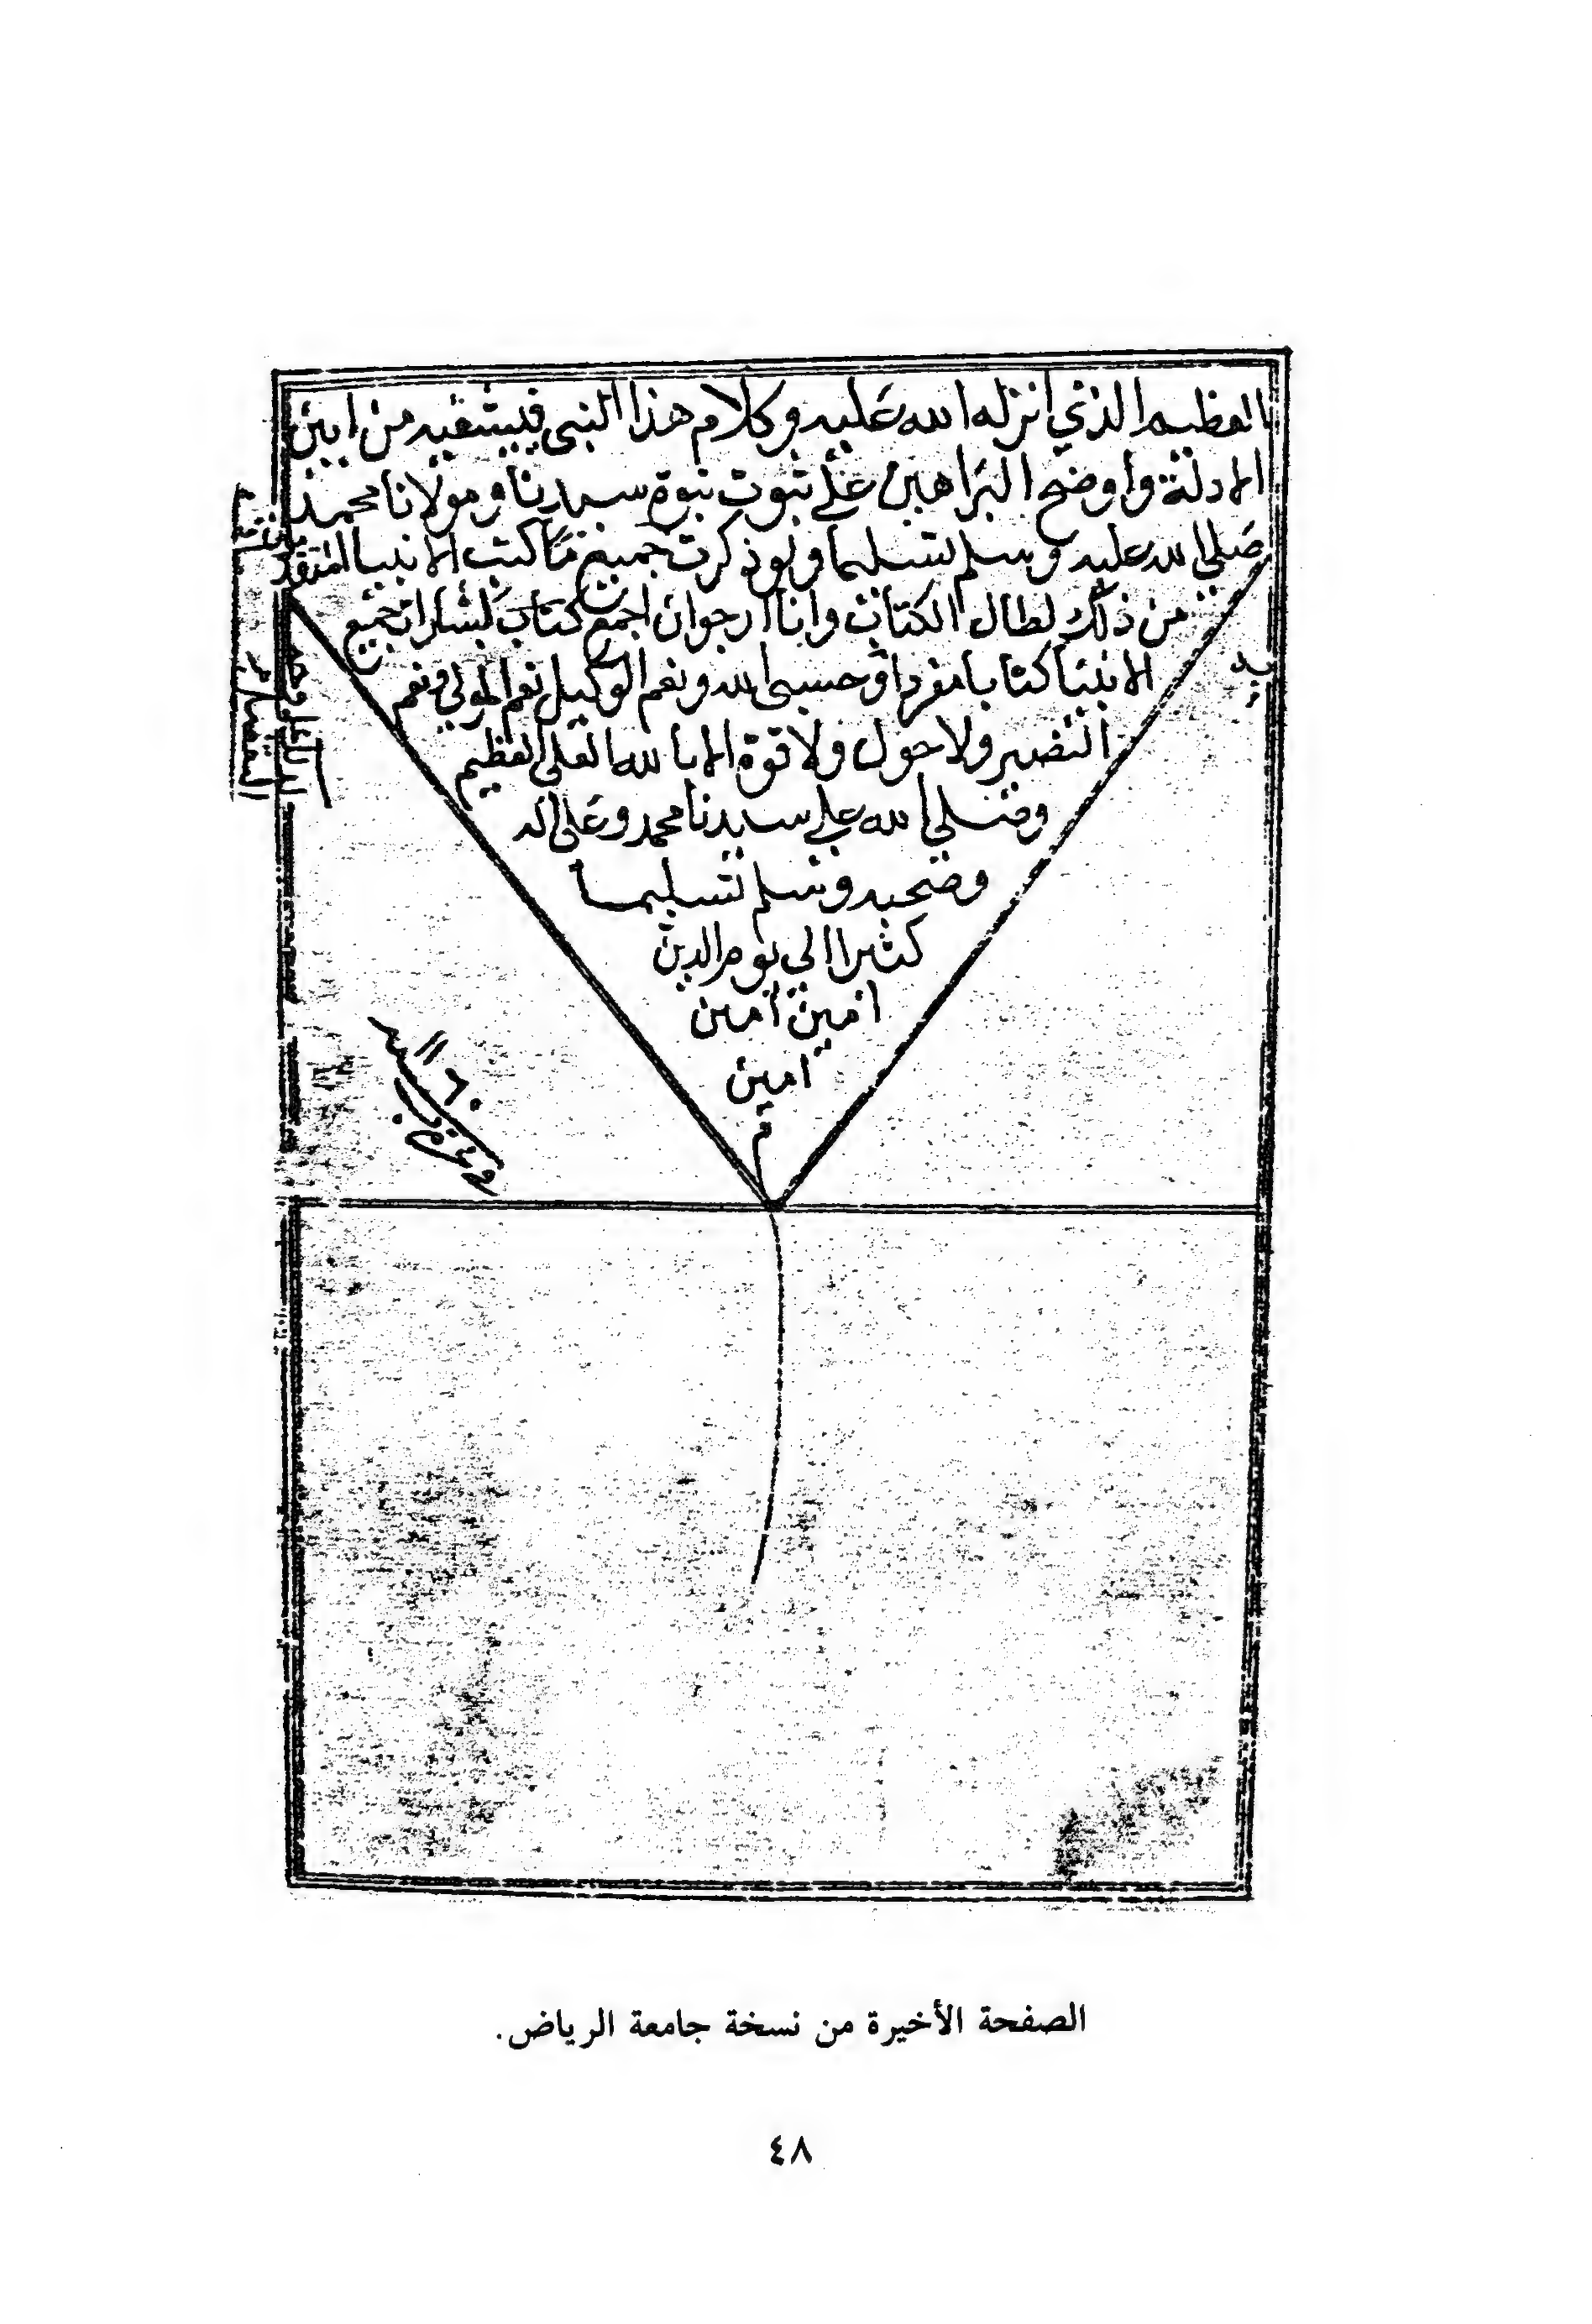 العظيم الذي انزله الله عليه وكلام هذا النبي فيه من ابين
الادلة واوضح البراهين على ثبوت نبوة سيدنا ومولانا محمد
صلى الله عليه وسلم تسليما ولو ذكرت جميع ما كتب الانبيا المتقد
من ذلك لطال الكتاب وانا ارجوا ان اجمع كتاب بشارات جميع
الانبيا كتابا مفردا وحسبي الله ونعم الوكيل نعم المولى ونعم
النصير ولا حول ولا قوة الا بالله العلي العظيم
وصلى الله على سيدنا محمد وعلى اله
وصحبه وسلم تسليما
كثيرا الي يوم الدين
امين امين
امين
م
الصفحة الأخيرة من نسخة جامعة الرياض.
٤٨